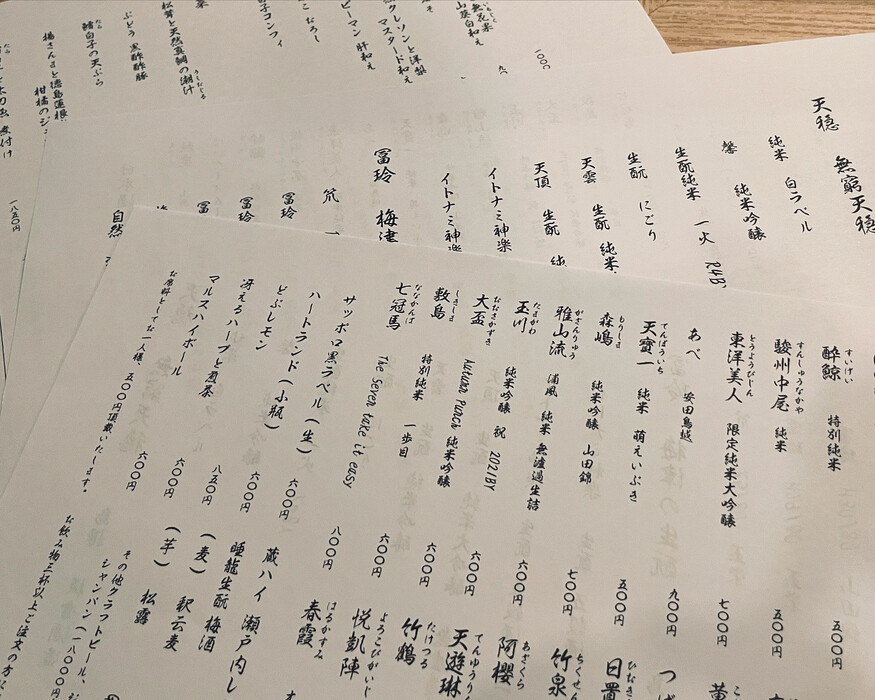 一〇〇〇
無花果
山葵白和え
クレソンと洋梨
マスタード和え
ピーマン 肝和え
白子コンフィ
松茸と天然真鯛の潮汁
うしおじる
ぶどう 黒酢酢豚
鱈白子の天ぷら
たら
一八五〇円
天穏
無窮天穏
純米 白ラベル
馨 純米吟醸
生酛純米 一火 R4B
生酛 にごり
天雲 生酛 純米
天頂 生酛 純
イトナミ神楽
イトナミ神楽
冨玲 梅津
笊 一
冨玲
冨玲
冨
自然
すいげい
酔鯨 特別純米 五〇〇円
すんしゅうなかや
駿州中尾 純米 五〇〇円
とうようびじん
東洋美人 限定純米大吟醸 七〇〇円
あべ 安田鳥越 九〇〇円
てんぽういち
天寳一 純米 萌えいぶき 五〇〇円
もりしま
森嶋 純米吟醸 山田錦 七〇〇円
がざんりゅう
雅山流 浦風 純米 無濾過生詰 六〇〇円
たまがわ
玉川 純米吟醸 祝 2021BY 六〇〇円
おおさかずき
大盃 Autumn Peach 純米吟醸 六〇〇円
しきしま
敷島 特別純米 一歩目 六〇〇円
ななかんば
七冠馬 The Seven take it easy 八〇〇円
サッポロ黒ラベル(生) 六〇〇円
ハートランド(小瓶) 六〇〇円
どぶレモン 八五〇円
冴えるハーブと煎茶 六〇〇円
マルスハイボール 六〇〇円
お席料としてお一人様、五〇〇円頂戴いたします。
ひなた
日置
ちくせん
竹泉
あざくら
阿櫻
てんゆうり
天遊琳
たけつる
竹鶴
よろこびがいじ
悦凱陣
はるかすみ
春霞
蔵ハイ 瀬戸内レ
睡龍生酛 梅酒
(麦) 釈云麦
(芋) 松露
その他クラフトビール、
シャンパン(一八〇〇〇円
お飲み物三杯以上ご注文の方